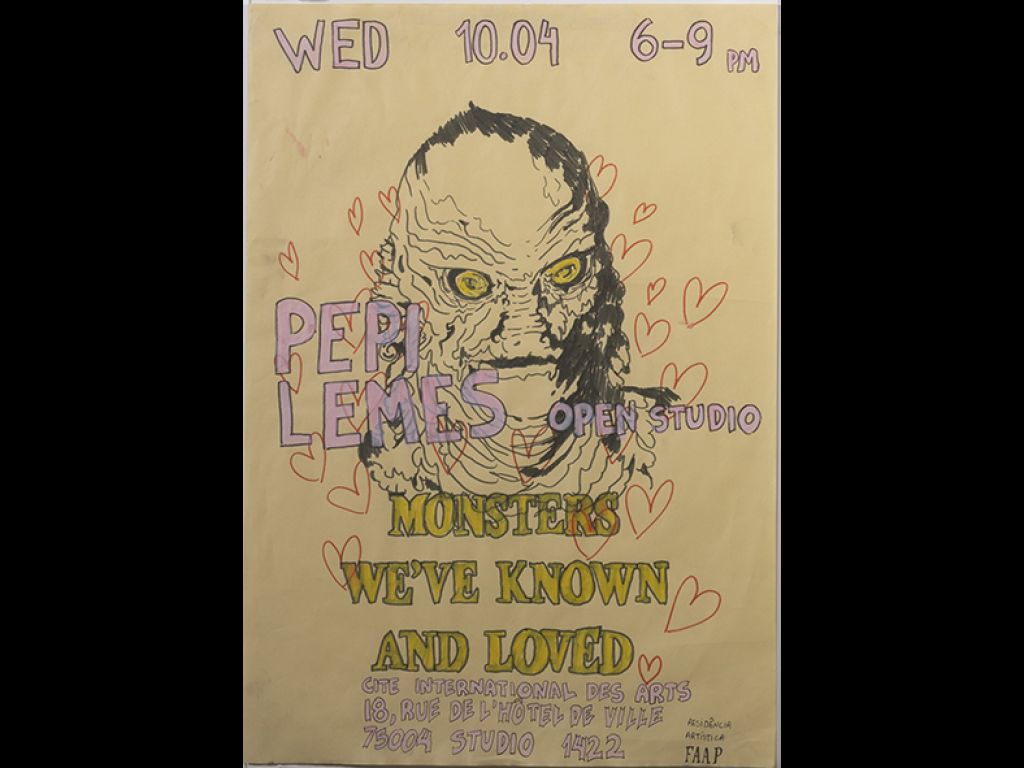 WED 10.04 6-9 PM
PEPI
LEMES
OPEN STUDIO
MONSTERS
WE'VE KNOWN
AND LOVED
CITE INTERNATIONAL DES ARTS
18, RUE DE L'HÔTEL DE VILLE
75004 STUDIO 1422
RESIDÊNCIA
ARTÍSTICA
FAAP